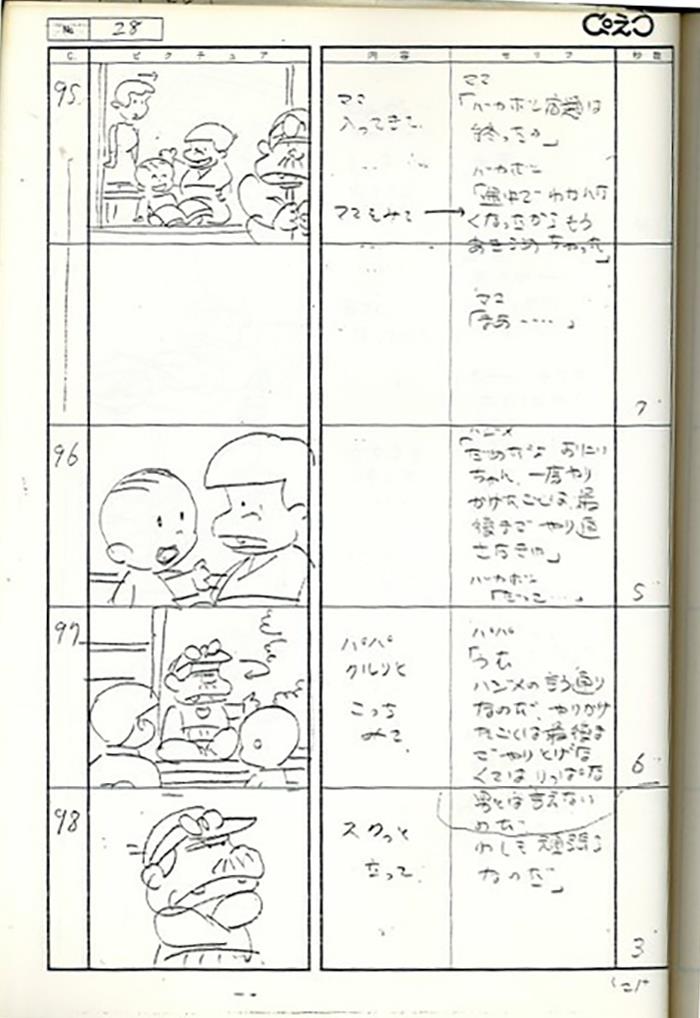 No. 28
ぴえろ
C. ピクチュア 内容 セリフ 秒数
95
ママ
入ってきて
ママをみて
ママ
「バカボン宿題は
終ったの」
バカボン
「途中で わかんな
くなったから もう
あきらめちゃった」
ママ
「まあ……」
7
96
ハジメ
「だめだよ おにい
ちゃん、一度やり
かけたことは、最
後まで やり通
さなきゃ」
バカボン
「だって…」
5
97
パパ
クルリと
こっち
みて、
パパ
「うむ
ハジメの言う通り
なのだ、やりかけ
たことは最後ま
でやりとげな
くては りっぱな
6
98
スクっと
立って、
男とは言えない
のだ
わしも 頑張る
なのだ」
3